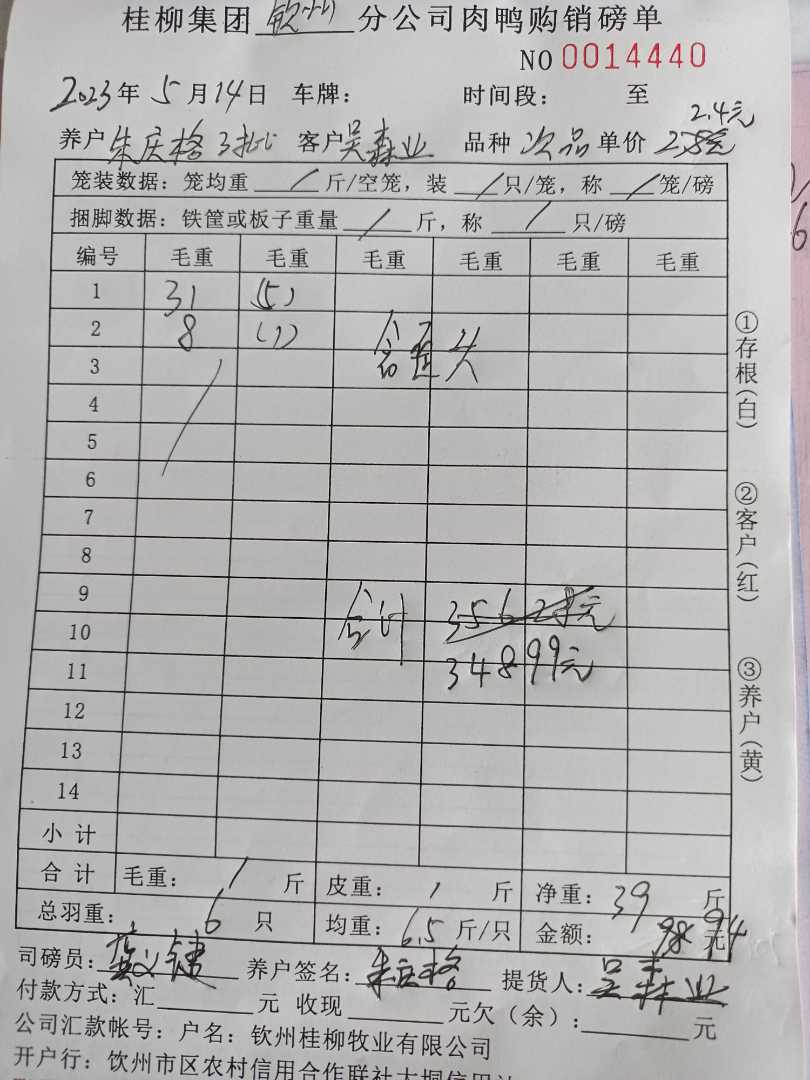 桂柳集团 钦州 分公司肉鸭购销磅单
NO 0014440
2023年 5月14日 车牌: 时间段: 至
2.4元
养户 朱庆格 3批 客户 吴森业 品种 次品 单价
笼装数据: 笼均重 / 斤/空笼, 装 / 只/笼, 称 / 笼/磅
捆脚数据: 铁筐或板子重量 / 斤, 称 / 只/磅
编号 毛重 毛重 毛重 毛重 毛重 毛重
1 31 (5)
2 8 (1)
3
4
5
6
7
8
9 合计
10
34899元
11
12
13
14
小计
合计 毛重: / 斤 皮重: / 斤 净重: 39 斤
总羽重: 6 只 均重: 6.5 斤/只 金额: 元
司磅员: 养户签名: 朱庆格 提货人: 吴森业
付款方式: 汇 元 收现 元欠(余): 元
公司汇款帐号: 户名: 钦州桂柳牧业有限公司
开户行: 钦州市区农村信用合作联社大垌信用社
①存根(白)
②客户(红)
③养户(黄)